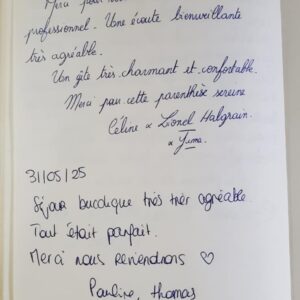 Merci pour
professionnel. Une écoute bienveillante
très agréable.
Un gîte très charmant et confortable.
Merci par cette parenthèse sereine
Céline & Lionel Halgrain.
& Yuma.
31/05/25
Séjour bucolique très très agréable.
Tout était parfait.
Merci nous reviendrons ♡
Pauline, thomas